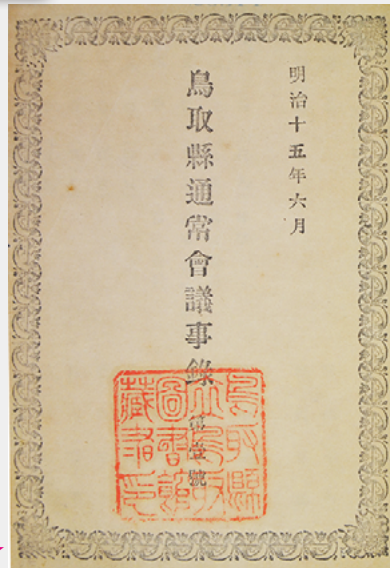 明治十五年六月
鳥取縣通常會議事錄 第壹號
鳥取縣
立鳥取
圖書館
藏書印